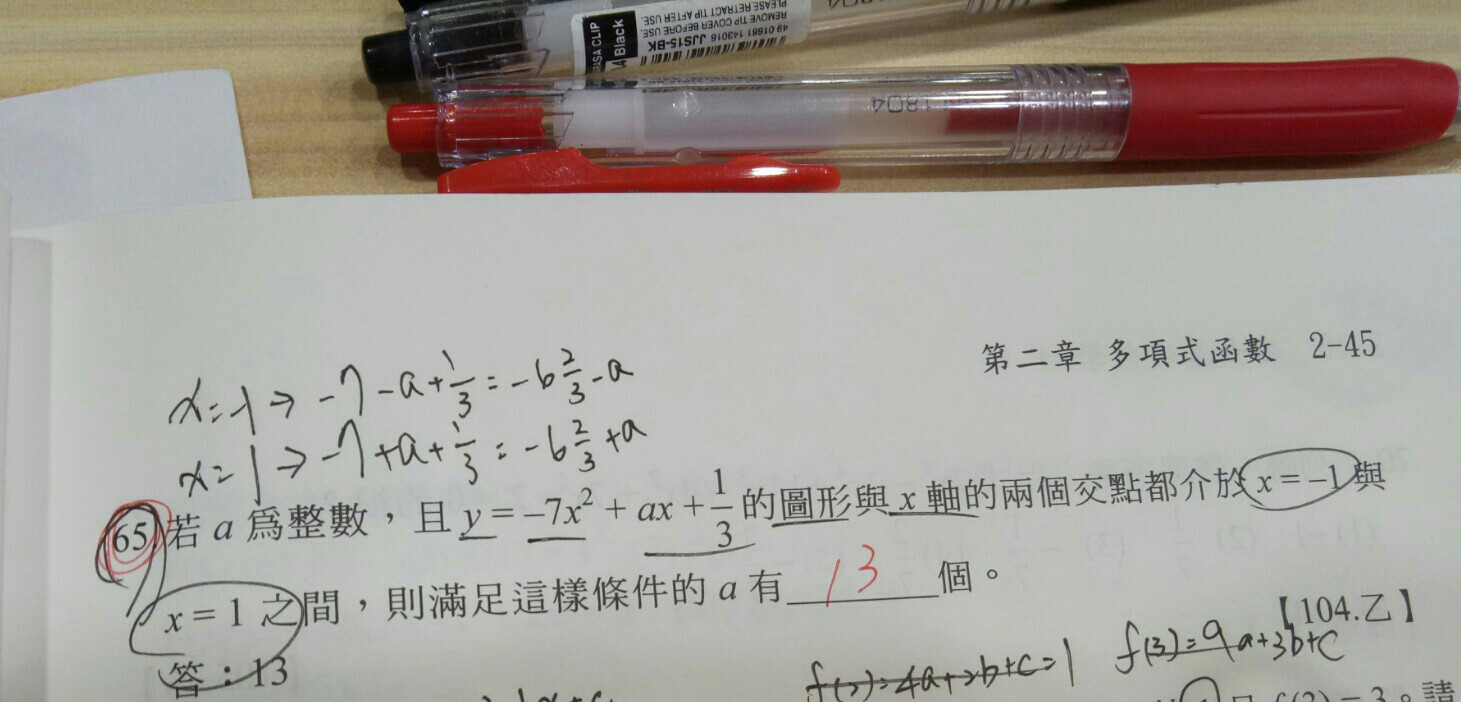 PLEASE RETRACT TIP AFTER USE.
REMOVE TIP COVER BEFORE USE.
49 01681 143016 JJS15-BK
Black
1804
第二章 多項式函數 2-45
x=-1⇒-7-a+1/3=-6 2/3-a
x=1⇒-7+a+1/3=-6 2/3+a
65 若 a 為整數，且 y = -7x² + ax + 1/3 的圖形與 x 軸的兩個交點都介於 x = -1 與
x = 1 之間，則滿足這樣條件的 a 有 13 個。
【104.乙】
答：13
f(2)=4a+2b+c=1 f(3)=9a+3b+c
f(2) = 3。請